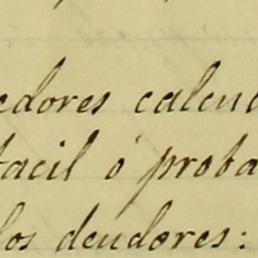 edores calcu
facil ó proba
los deudores: